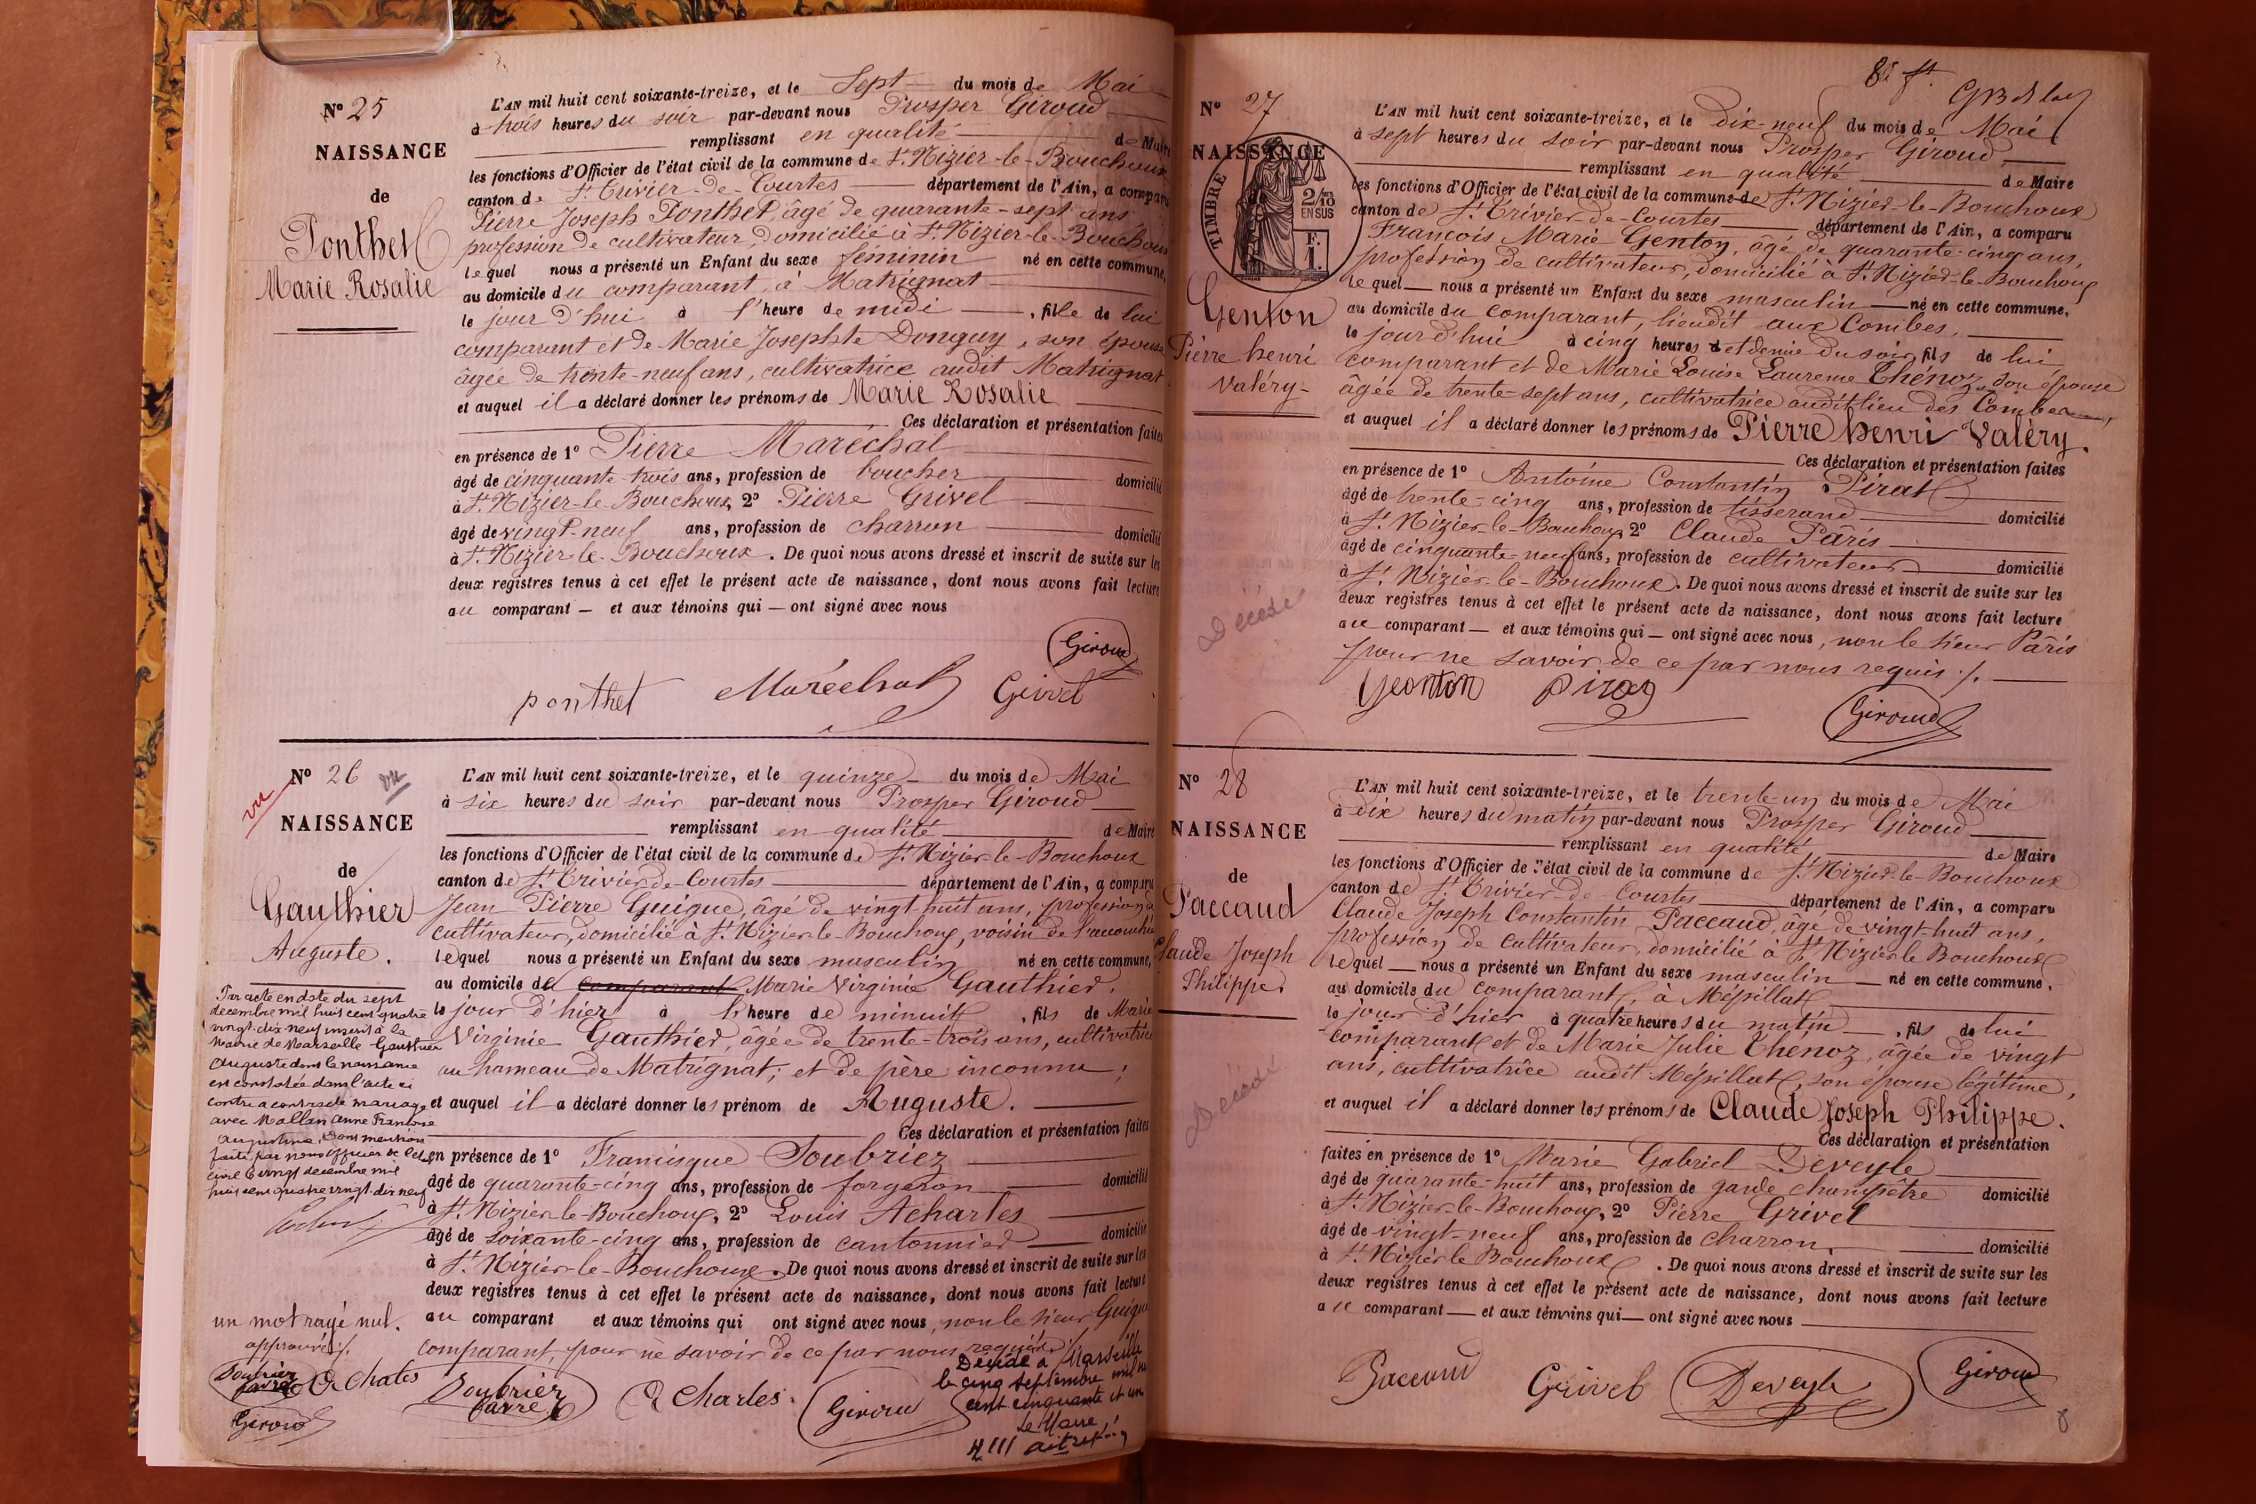 N° 25
NAISSANCE
de
Ponthet
Marie Rosalie
L'AN mil huit cent soixante-treize, et le Sept du mois de Mai
à trois heures du soir par-devant nous Prosper Giroud
remplissant en qualité de Maire
les fonctions d'Officier de l'état civil de la commune de St. Nizier-le-Bouchoux
canton de St. Trivier-de-Courtes département de l'Ain, a comparu
Pierre Joseph Ponthet, âgé de quarante-sept ans
profession de cultivateur, domicilié à St. Nizier-le-Bouchoux
lequel nous a présenté un Enfant du sexe féminin né en cette commune,
au domicile du comparant, à Matrignat
le jour d'hui à l'heure de midi, fille de lui
comparant et de Marie Josephte Donguy, son épouse
âgée de trente-neuf ans, cultivatrice audit Matrignat.
et auquel il a déclaré donner les prénoms de Marie Rosalie
Ces déclaration et présentation faites
en présence de 1° Pierre Maréchal
âgé de cinquante-trois ans, profession de boucher domicilié
à St. Nizier-le-Bouchoux, 2° Pierre Grivel
âgé de vingt-neuf ans, profession de charron domicilié
à St. Nizier-le-Bouchoux. De quoi nous avons dressé et inscrit de suite sur les
deux registres tenus à cet effet le présent acte de naissance, dont nous avons fait lecture
au comparant — et aux témoins qui — ont signé avec nous
Giroud
ponthet Maréchal Grivel
N° 26 vu
vu
NAISSANCE
de
Gauthier
Auguste.
Par acte en date du sept
decembre mil huit cent quatre
vingt-dix neuf inscrit à la
mairie de Marseille Gauthier
Auguste dont la naissance
est constatée dans l'acte ci
contre a contracté mariage
avec Mallan Anne Francoise
Augustine. Dont mention
faite par nous officier de l'etat
civil le vingt decembre mil
huit cent quatre vingt-dix neuf
un mot rayé nul.
approuvé ./.
Soubriez
favre Acharles
Giroud
L'AN mil huit cent soixante-treize, et le quinze du mois de Mai
à six heures du soir par-devant nous Prosper Giroud
remplissant en qualité de Maire
les fonctions d'Officier de l'état civil de la commune de St. Nizier-le-Bouchoux
canton de St. Trivier-de-Courtes département de l'Ain, a comparu
Jean Pierre Guigue, âgé de vingt-huit ans, profession de
cultivateur, domicilié à St. Nizier-le-Bouchoux, voisin de l'accouchée
lequel nous a présenté un Enfant du sexe masculin né en cette commune,
au domicile de comparant Marie Virginie Gauthier,
le jour d'hier à l'heure de minuit, fils de Marie
Virginie Gauthier, âgée de trente-trois ans, cultivatrice
au hameau de Matrignat; et de père inconnu;
et auquel il a déclaré donner les prénom de Auguste.
Ces déclaration et présentation faites
en présence de 1° Francisque Soubriez
âgé de quarante-cinq ans, profession de forgeron domicilié
à St. Nizier-le-Bouchoux, 2° Louis Acharles
âgé de soixante-cinq ans, profession de cantonnier domicilié
à St. Nizier-le-Bouchoux. De quoi nous avons dressé et inscrit de suite sur les
deux registres tenus à cet effet le présent acte de naissance, dont nous avons fait lecture
au comparant et aux témoins qui ont signé avec nous, non le sieur Guigue
comparant, pour ne savoir de ce par nous requis ./.
Soubriez
favre Acharles. Giroud
Décédé à Marseille
le cinq septembre mil neuf
cent cinquante et un
Le Maire,
N° 27
NAISSANCE
TIMBRE
2/10
EN SUS
F.
1.
Genton
Pierre henri
Valéry
Décédé
8e ft.
L'AN mil huit cent soixante-treize, et le dix-neuf du mois de Mai
à sept heures du soir par-devant nous Prosper Giroud
remplissant en qualité de Maire
les fonctions d'Officier de l'état civil de la commune de St. Nizier-le-Bouchoux
canton de St. Trivier-de-Courtes département de l'Ain, a comparu
François Marie Genton, âgé de quarante-cinq ans,
profession de cultivateur, domicilié à St. Nizier-le-Bouchoux
lequel — nous a présenté un Enfant du sexe masculin — né en cette commune,
au domicile du comparant, lieudit aux Combes,
le jour d'hui à cinq heures et demie du soir, fils de lui
comparant et de Marie Louise Laurence Thénoz, son épouse
âgée de trente-sept ans, cultivatrice audit lieu des Combes,
et auquel il a déclaré donner les prénoms de Pierre henri Valéry.
Ces déclaration et présentation faites
en présence de 1° Antoine Constantin Pirat
âgé de trente-cinq ans, profession de tisserand domicilié
à St. Nizier-le-Bouchoux, 2° Claude Pâris
âgé de cinquante-neuf ans, profession de cultivateur domicilié
à St. Nizier-le-Bouchoux. De quoi nous avons dressé et inscrit de suite sur les
deux registres tenus à cet effet le présent acte de naissance, dont nous avons fait lecture
au comparant — et aux témoins qui — ont signé avec nous, non le sieur Pâris
pour ne savoir de ce par nous requis ./.
Geanton Pirat Giroud
N° 28
NAISSANCE
de
Paccaud
Claude Joseph
Philippe
Décédé
L'AN mil huit cent soixante-treize, et le trente-un du mois de Mai
à dix heures du matin par-devant nous Prosper Giroud
remplissant en qualité de Maire
les fonctions d'Officier de l'état civil de la commune de St. Nizier-le-Bouchoux
canton de St. Trivier-de-Courtes département de l'Ain, a comparu
Claude Joseph Constantin Paccaud, âgé de vingt-huit ans,
profession de cultivateur, domicilié à St. Nizier-le-Bouchoux
lequel — nous a présenté un Enfant du sexe masculin — né en cette commune,
au domicile du comparant, à Mépillat
le jour d'hier à quatre heures du matin, fils de lui
comparant et de Marie Julie Thénoz, âgée de vingt
ans, cultivatrice audit Mépillat, son épouse légitime,
et auquel il a déclaré donner les prénoms de Claude Joseph Philippe.
Ces déclaration et présentation
faites en présence de 1° Marie Gabriel Deveyle
âgé de quarante-huit ans, profession de garde champêtre domicilié
à St. Nizier-le-Bouchoux, 2° Pierre Grivel
âgé de vingt-neuf ans, profession de charron, domicilié
à St. Nizier-le-Bouchoux. De quoi nous avons dressé et inscrit de suite sur les
deux registres tenus à cet effet le présent acte de naissance, dont nous avons fait lecture
au comparant — et aux témoins qui — ont signé avec nous
Paccaud Grivel Deveyle Giroud
8